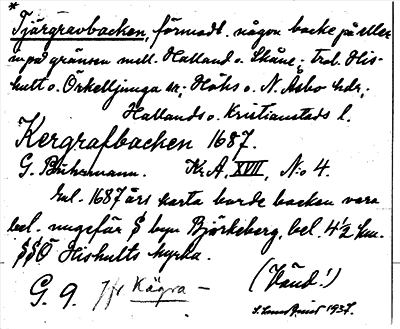 *
Tjärgravbacken, förmodl. någon backe på eller
inpå gränsen mell. Halland o. Skåne; trol. His-
hult o. Örkelljunga sn; Höks o. N. Åsbo hdr;
Hallands o. Kristianstads l.
Kergrafbacken 1687.
G. Buhrmann. Kr. A. XVIII, N:o 4.
Enl. 1687 års karta borde backen vara
bel. ungefär S byn Björkeberg, bel. 4½ km.
SSO Hishults kyrka.
G. 9. Jfr Kägra – (Vänd!)
1937.